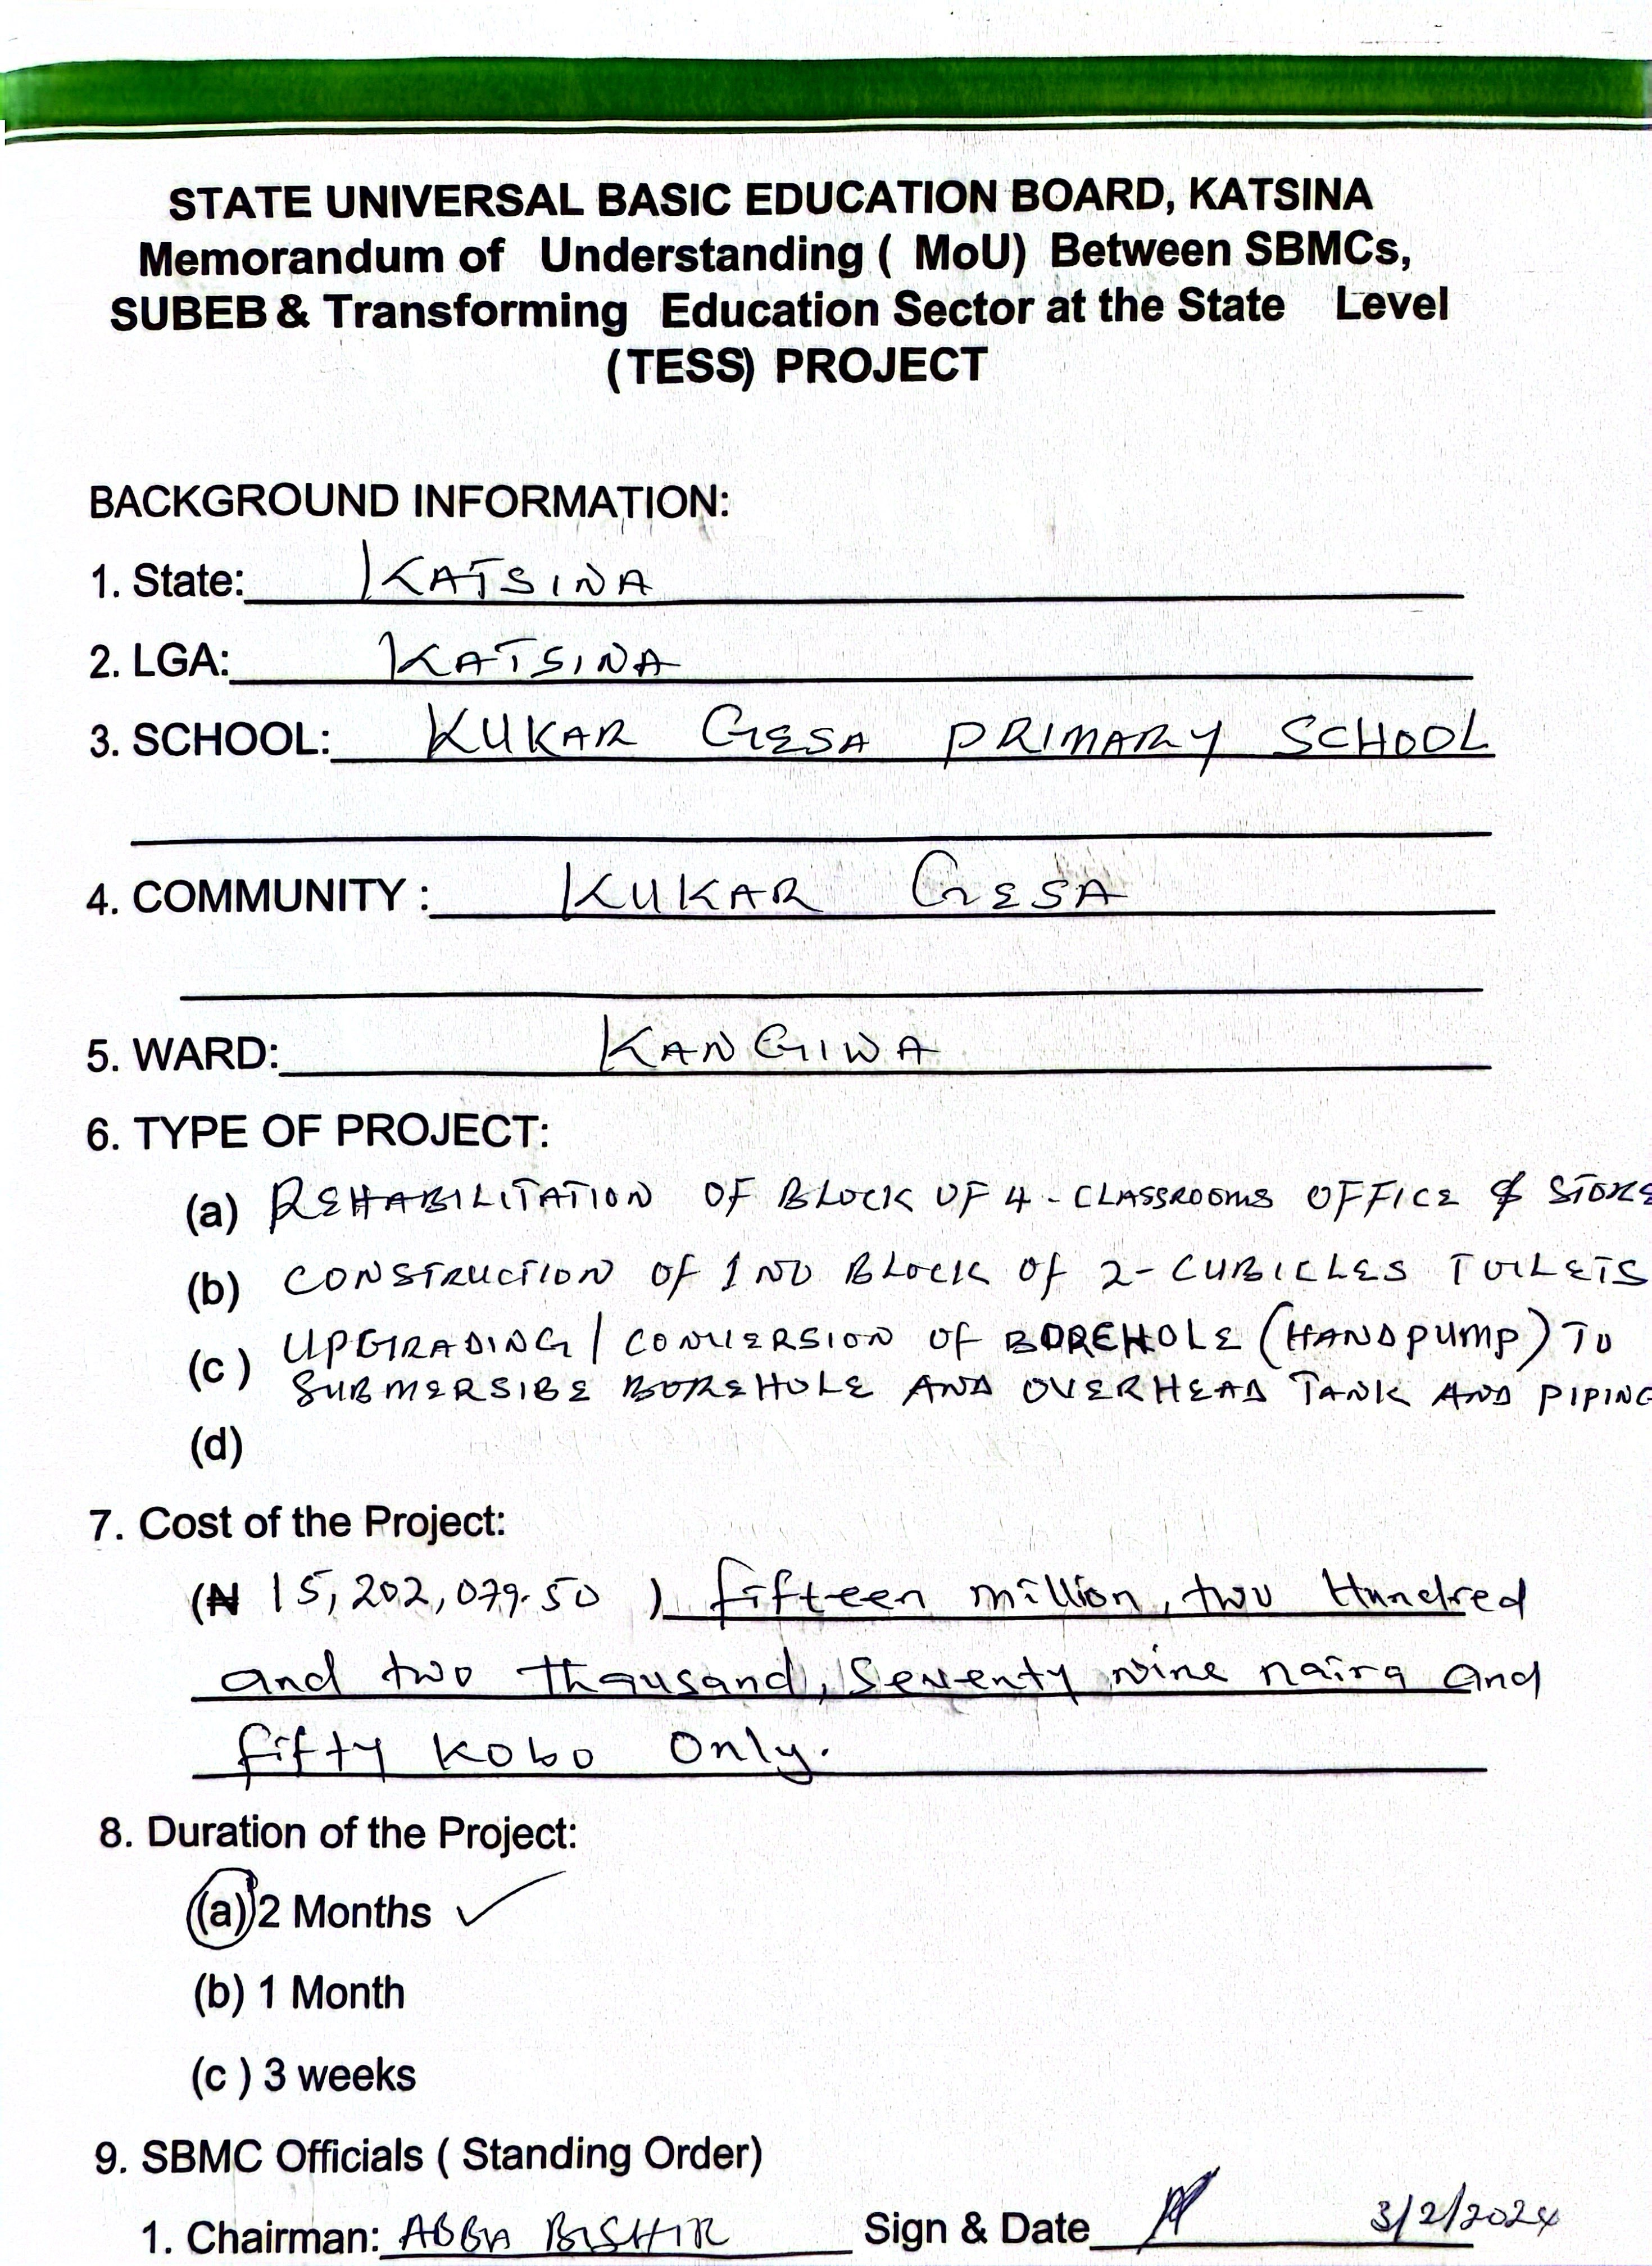 STATE UNIVERSAL BASIC EDUCATION BOARD, KATSINA
Memorandum of Understanding ( MoU) Between SBMCs,
SUBEB & Transforming Education Sector at the State Level
(TESS) PROJECT
BACKGROUND INFORMATION:
1. State: KATSINA
2. LGA: KATSINA
3. SCHOOL: KUKAR GESA PRIMARY SCHOOL
4. COMMUNITY : KUKAR GESA
5. WARD: KANGIWA
6. TYPE OF PROJECT:
(a) REHABILITATION OF BLOCK OF 4 - CLASSROOMS OFFICE & STORE
(b) CONSTRUCTION OF 1 NO BLOCK OF 2-CUBICLES TOILETS
(c ) UPGRADING / CONVERSION OF BOREHOLE (HANDPUMP) TO
SUBMERSIBE BOREHOLE AND OVERHEAD TANK AND PIPING
(d)
7. Cost of the Project:
(₦ 15,202,079.50 ) fifteen million, two Hundred
and two thousand, Seventy nine naira and
fifty kobo Only.
8. Duration of the Project:
(a) 2 Months ✓
(b) 1 Month
(c ) 3 weeks
9. SBMC Officials ( Standing Order)
1. Chairman: ABBA BISHIR Sign & Date 3/2/2024